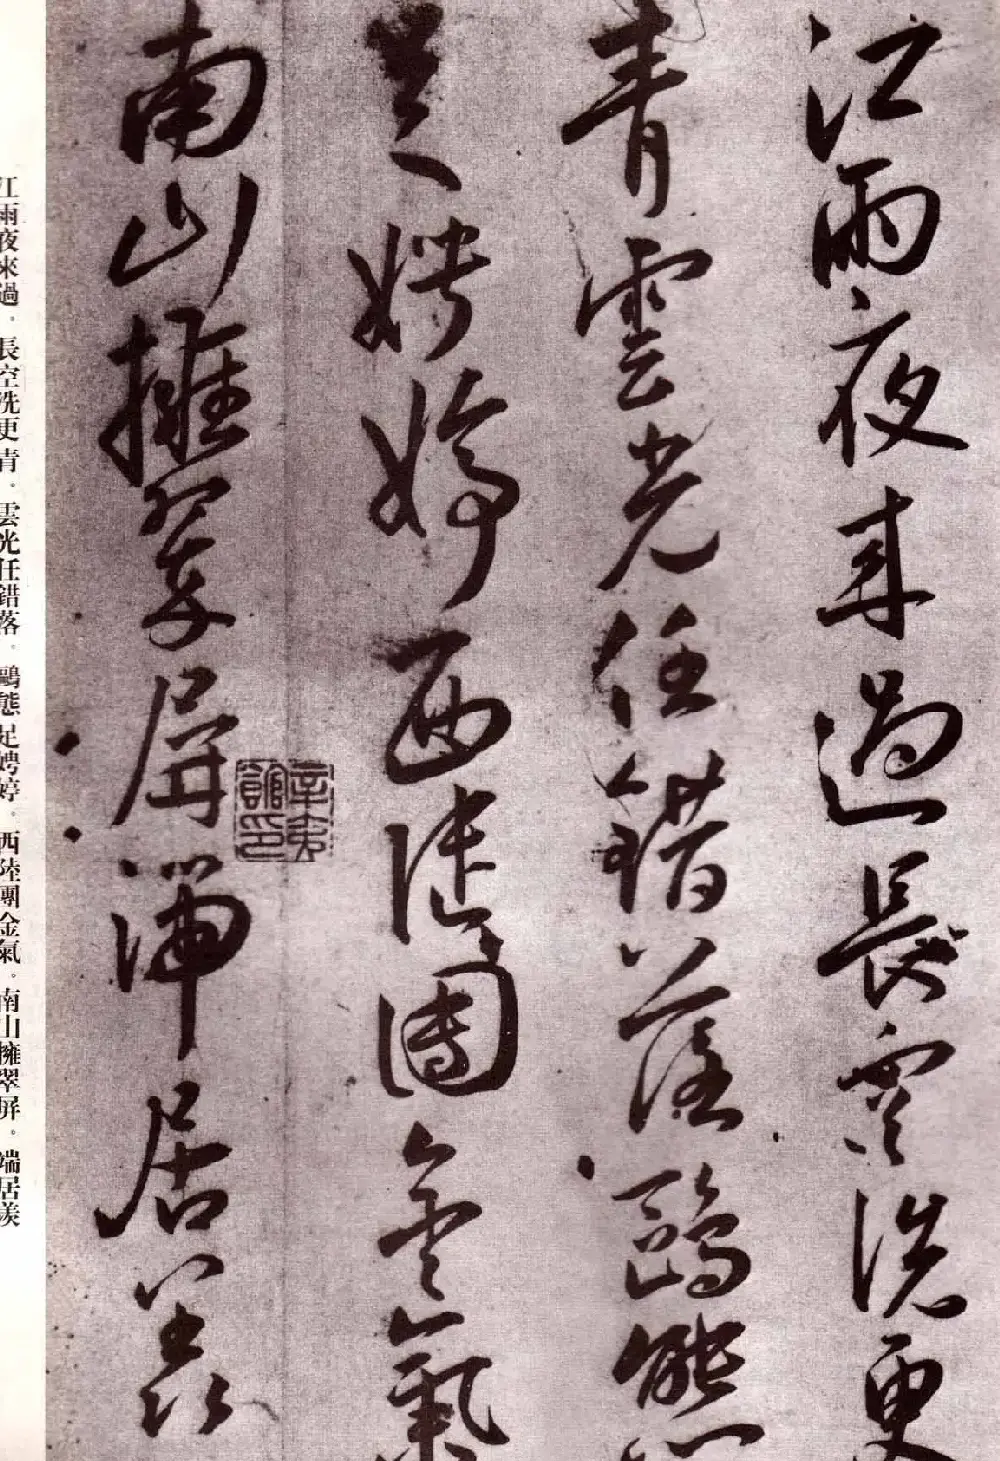 江雨夜来過長空洗更
青雲光任錯落鷗態
足娉婷西陸團金氣
南山擁翠屏端居羨
辛夷館印
江雨夜來過。長空洗更青。雲光任錯落。鷗態足娉婷。西陸團金氣。南山擁翠屏。端居羨